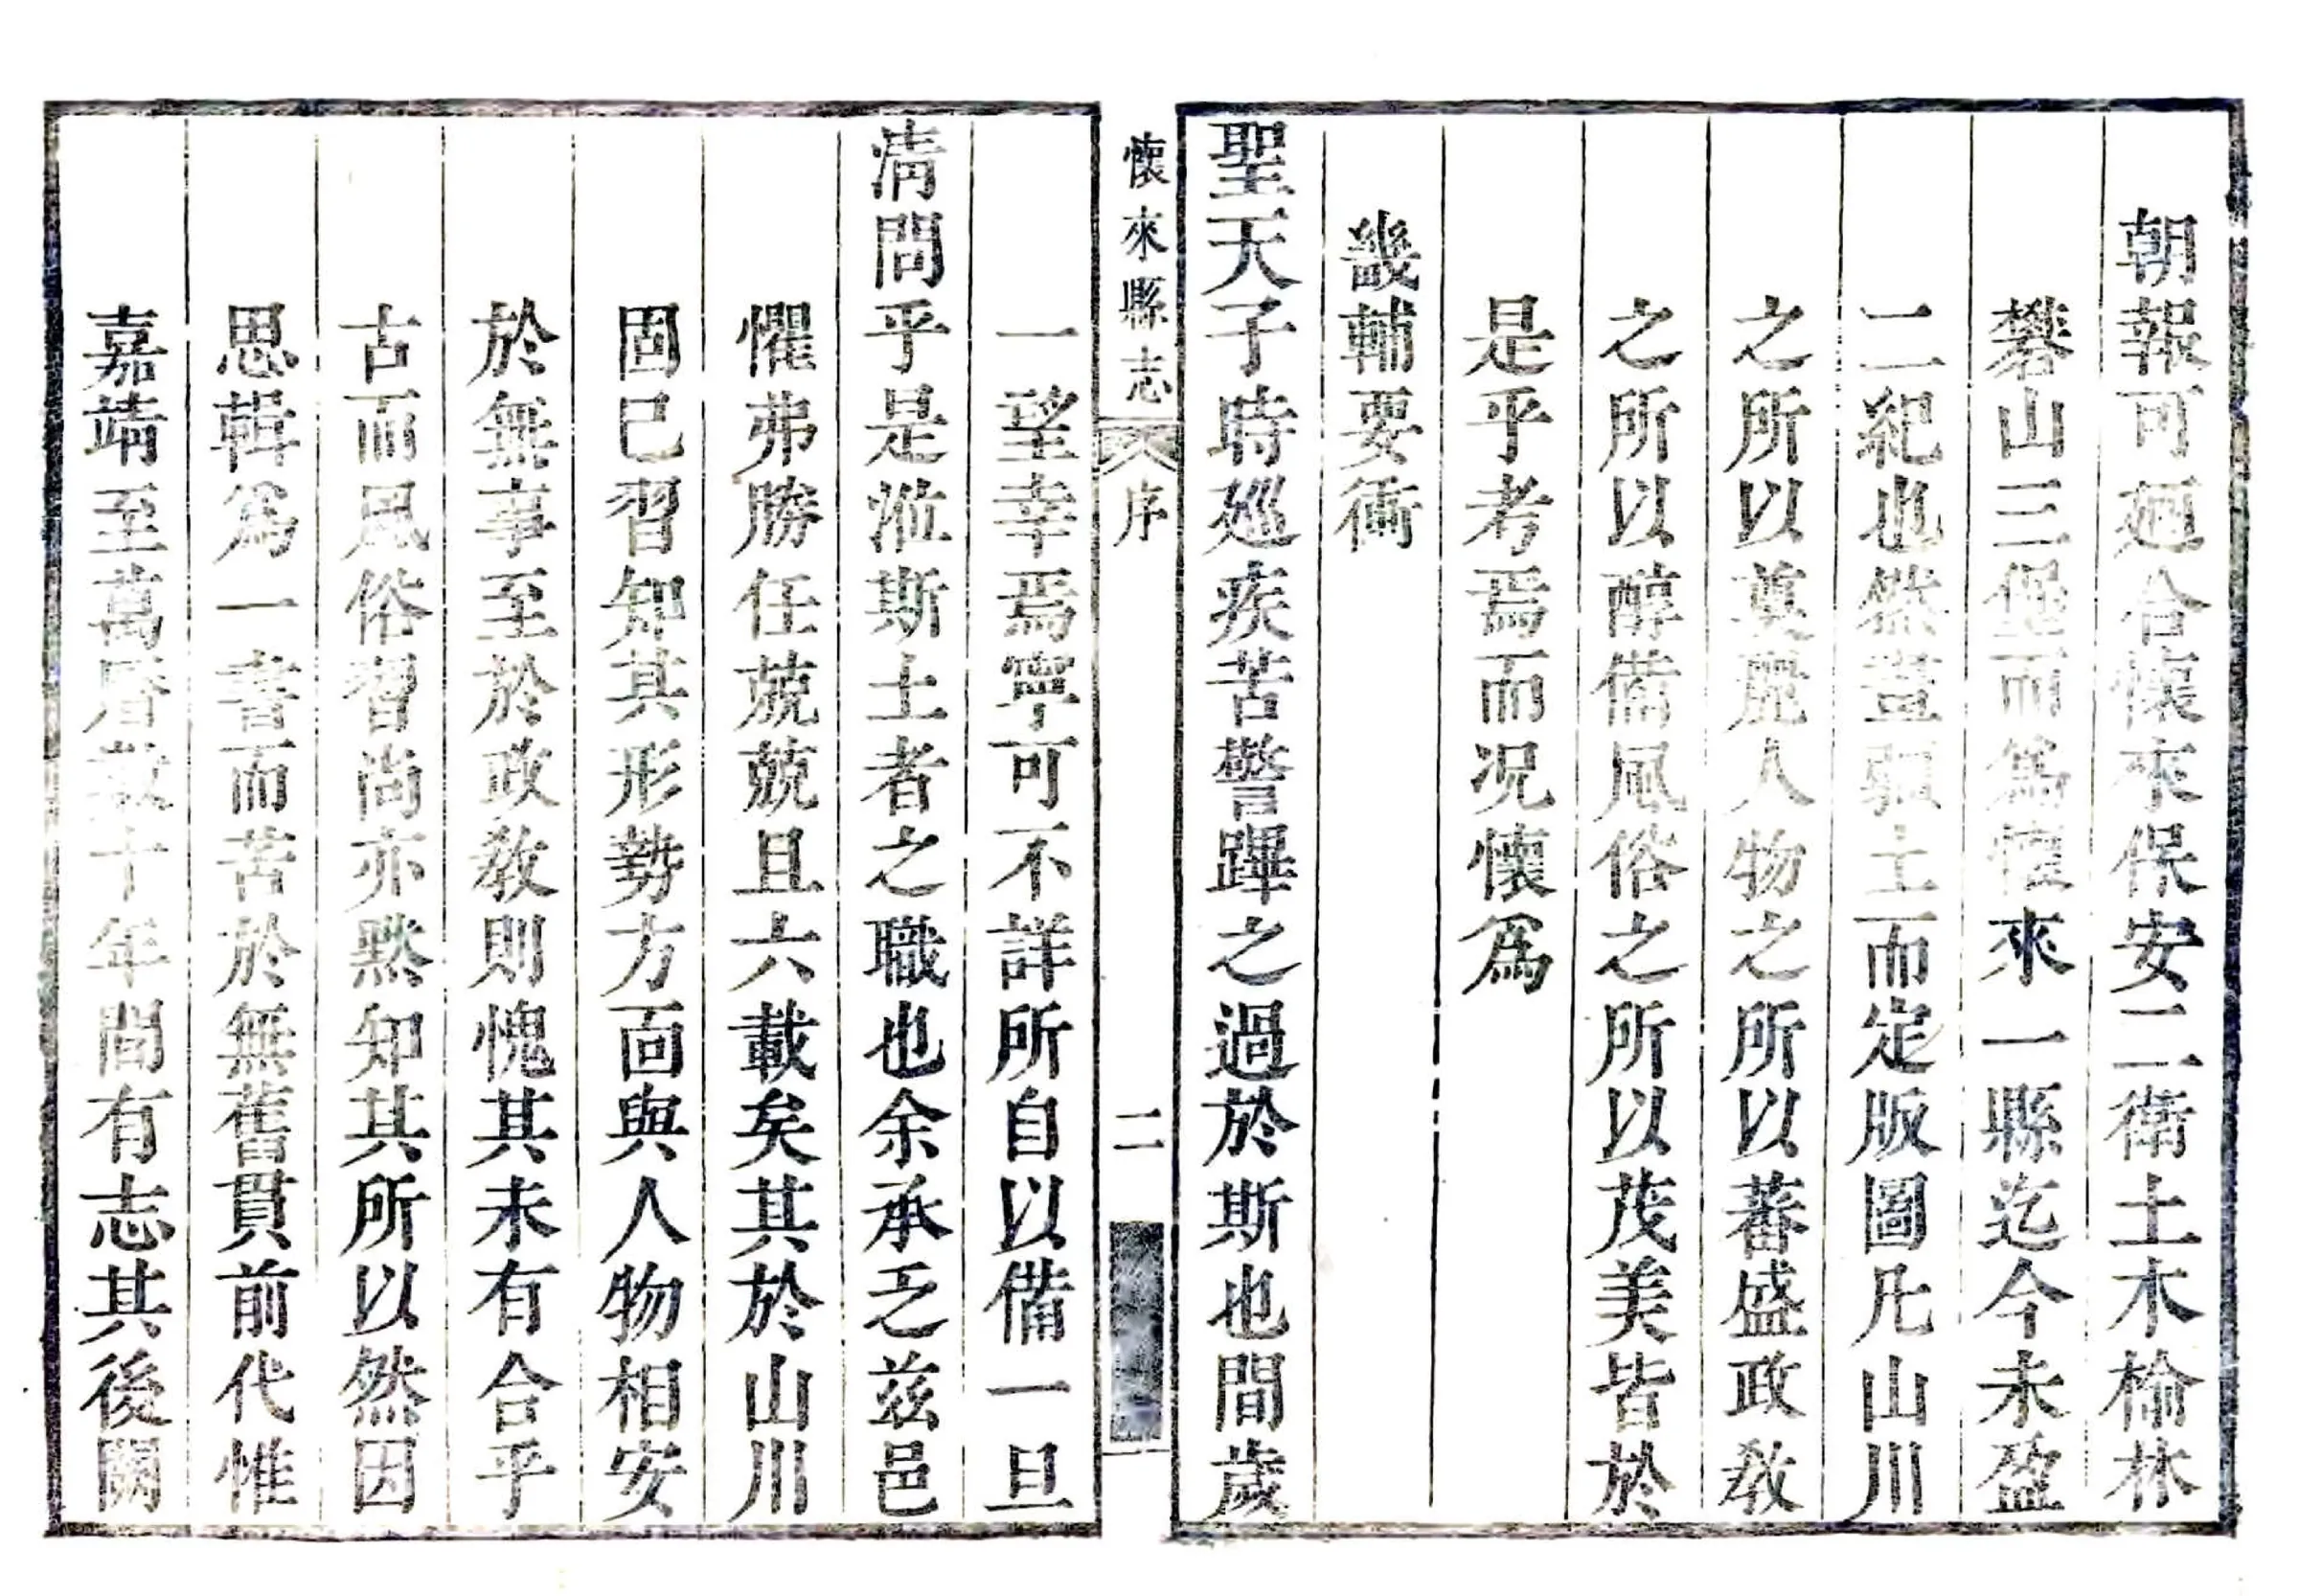 朝報可廼合懷來保安二衛土木榆林
礬山三堡而爲懷來一縣迄今未盈
二紀也然畫疆土而定版圖凡山川
之所以奠麗人物之所以蕃盛政敎
之所以醇備風俗之所以茂美皆於
是乎考焉而况懷爲
畿輔要衝
聖天子時廵疾苦警蹕之過於斯也間歲
懷來縣志 序 二
一望幸焉寜可不詳所自以備一旦
淸問乎是涖斯土者之職也余承乏兹邑
懼弗勝任兢兢且六載矣其於山川
固已習知其形勢方面與人物相安
於無事至於政敎則愧其未有合乎
古而風俗習尚亦黙知其所以然因
思輯爲一書而苦於無舊貫前代惟
嘉靖至萬曆數十年間有志其後闕